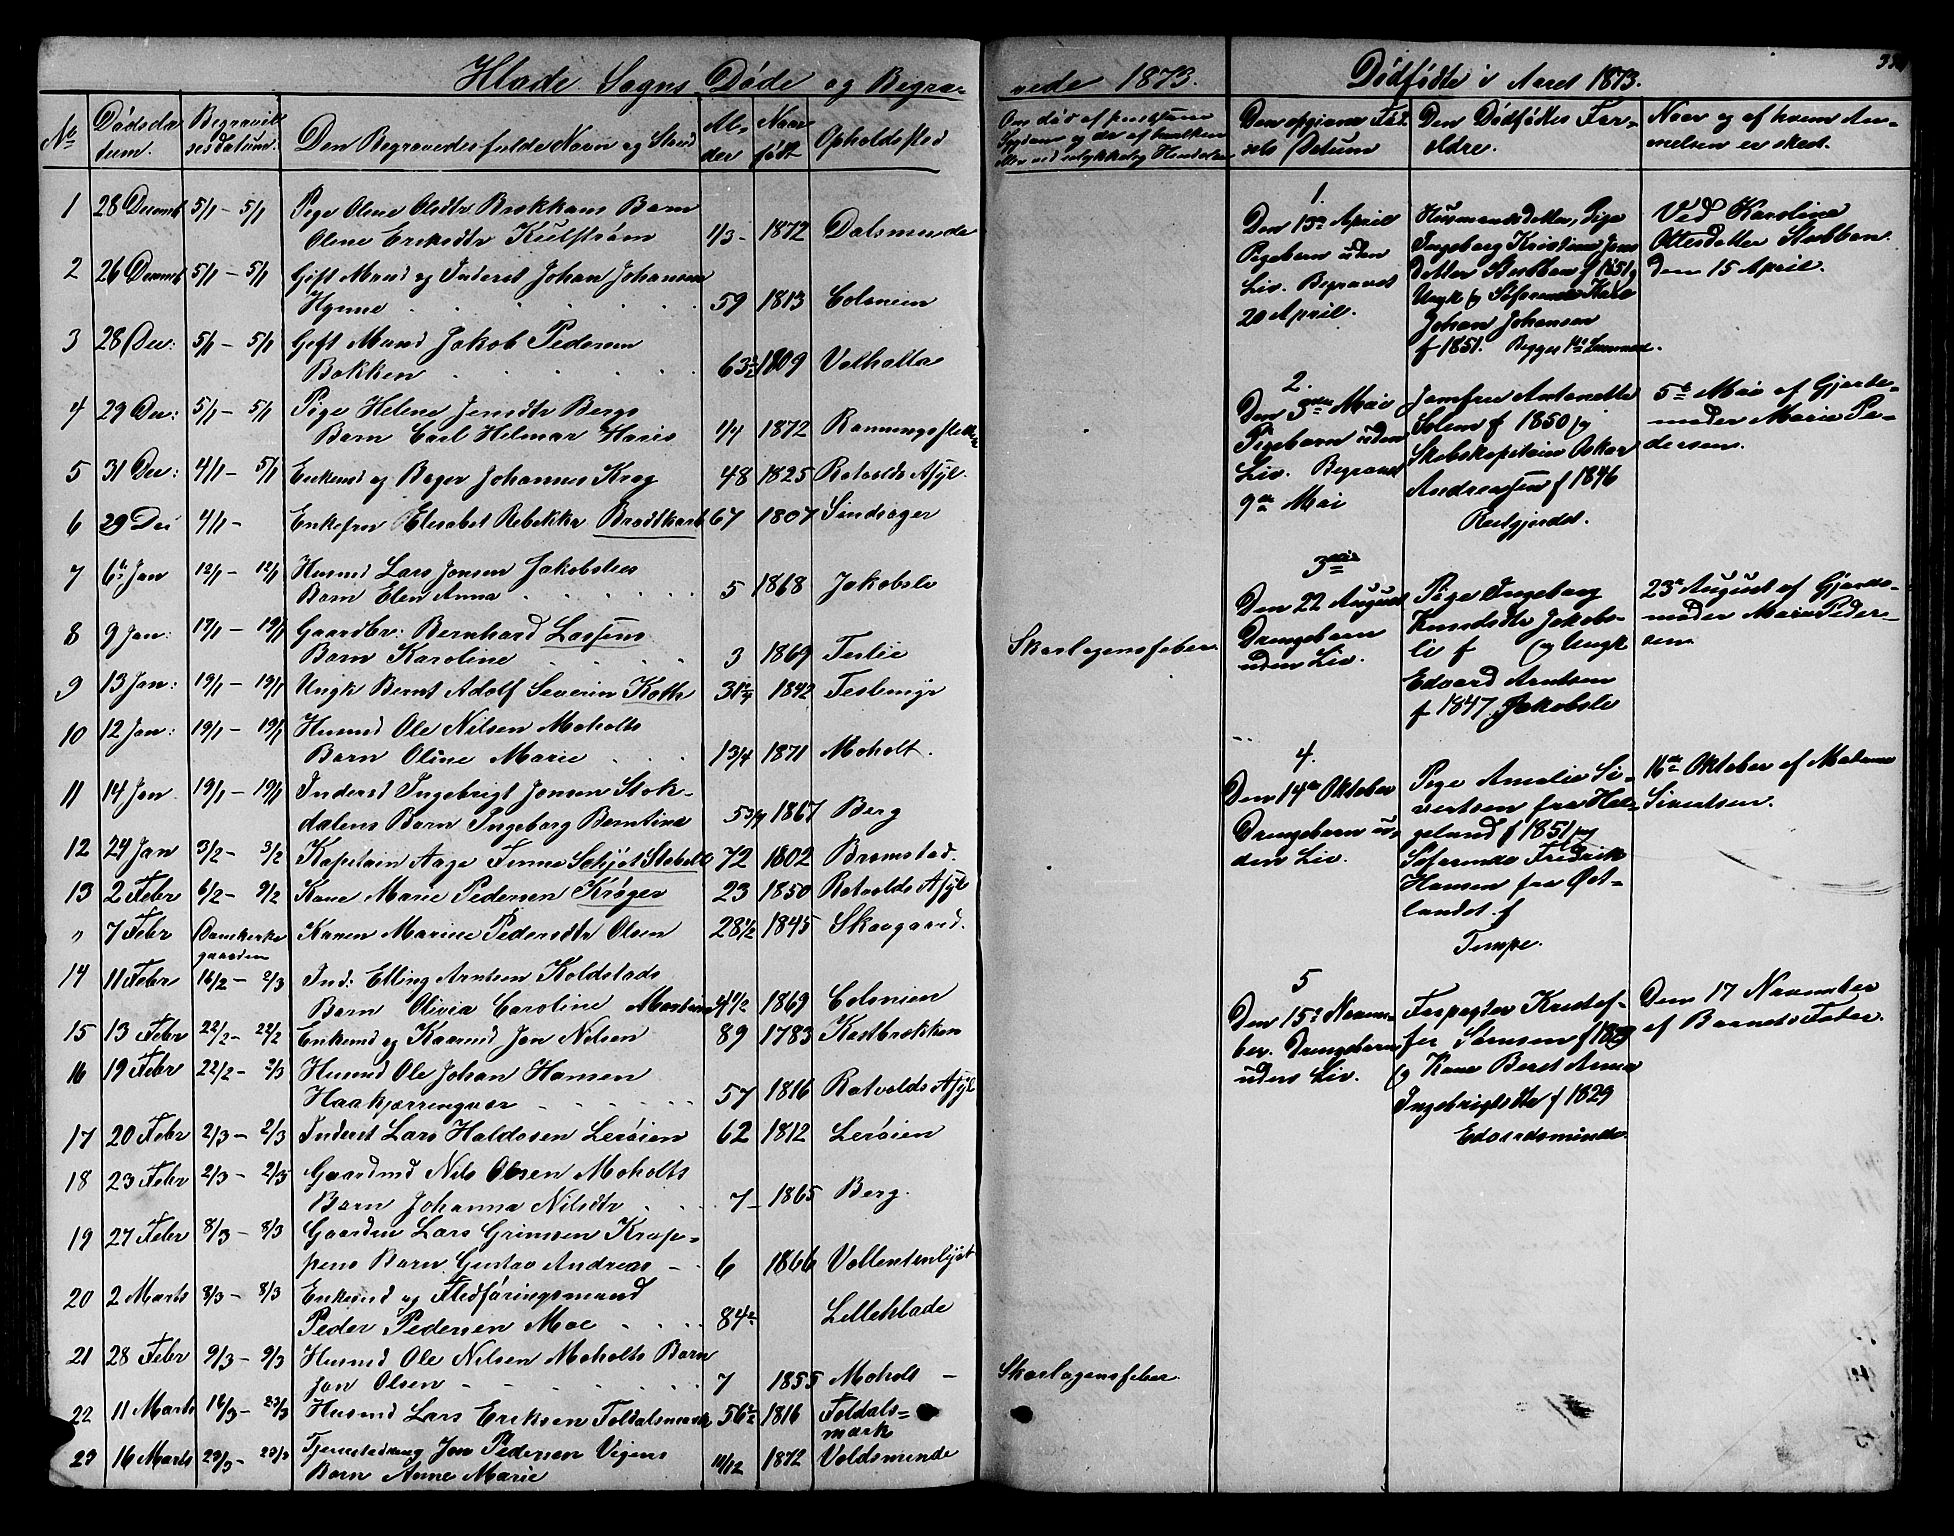 Hlade Sogns Døde og Begra-
vede 1873.
Dødfødte i Aaret 1873.
No Dødsda tum. Begravel sesdatum. Den Begravedes fulde Navn og Stand Al- der Naar født Opholdssted
1 28 Decemb 5/1 - 5/1 Pige Oline Olsdtr Brekkans Barn
Oline Eriksdtr Kulstrøm 1/3 - 1872 Dalsminde
2 26 Decemb 5/1 - 5/1 Gift Mand og Inderst Johan Johansen
Hynne 59 1813 Colonien
3 28 Dec: 5/1 - 5/1 Gift Mand Jakob Pedersen
Bakken 63 1/2 1809 Valhalla
4 29 Dec: 5/1 - 5/1 Pige Helene Jensdtr Bergs
Barn Carl Hilmar Haris 1/4 1872
5 31 Dec: 4/1 - 5/1 Enkemd og Bager Johannes Krog 48 1825 Rotvolds Asyl.
6 29 Dec 4/1 - Enkefru Elisabet Rebekka Brodtkorb 67 1807 Sindsager
7 6te Jan 12/1 - 12/1 Husmd Lars Jonsen Jakobslies
Barn Elen Anna 5 1868 Jakobsle
8 9 Jan: 19/1 - 19/1 Gaardbr: Bernhard Lassens
Barn Karoline 3 1869 Teslie
Skarlagensfeber.
9 13 Jan: 19/1 - 19/1 Ungk Bernt Adolf Severin Koth 31 1842 Teslimyr
10 12 Jan: 19/1 - 19/1 Husmd Ole Nilsen Moholts
Barn Oline Marie 1 3/4 1871 Moholt.
11 14 Jan 19/1 - 19/1 Inderst Ingebrigt Jonsen Stok-
dalens Barn Ingeborg Berntine 5 3/4 1867 Berg
12 24 Jan 3/2 - 3/2 Kapitain Aage Finne Schjøt Stabell 72 1802 Bromstad.
13 2 Febr 6/2 - 9/2 Kone Marie Pedersen Krøger 23 1850 Rotvolds Asyl
" 7 Febr Domkirke gaarden Karen Marine Pedersdtr Olsen 28 1/2 1845 Skovgaard.
14 11 Febr 16/2 - 2/3 Ind: Elling Arntsen Koldstads
Barn Olivia Caroline Martine 4 1/2 1869 Colonien
15 13 Febr 22/2 - 22/2 Enkemd og Kaarmd Jon Nilsen 89 1783 Kastbrekken
16 19 Febr 22/2 - 2/3 Husmd Ole Johan Hansen
Haakjerringvær 57 1816 Rotvolds Asyl
17 20 Febr 2/3 - 2/3 Inderst Lars Haldosen Lerøien 62 1812 Lerøien
18 23 Febr 2/3 - 2/3 Gaardmd Nils Olsen Moholts
Barn Johanna Nilsdtr 7 - 1865 Berg.
19 27 Febr 8/3 - 8/3 Gaardm Lars Grimsen Krop-
pens Barn Gustav Andreas - 6 1866 Vallentinlyst
20 2 Marts 8/3 - 8/3 Enkemd og Fledføringsmand
Peder Pedersen Moe 84 Lillehlade
21 28 Febr 9/3 - 9/3 Husmd Ole Nilsen Moholts Barn
Jon Olsen 7 1855 Moholt -
Skarlagensfeber.
22 11 Marts 16/3 - 23/3 Husmd Lars Eriksen Foldalsmark 56 1/2 1816 Foldals=
mark
23 16 Marts 23/3 - 23/3 Jon Pedersen Vigens
Barn Anne Marie 11/12 1872 Voldsminde
Den opgivne Fød-
sels Datum
Den Dødfødtes For-
ældre.
Naar og af hvem An-
melsen er skeet.
1.
Den 13de April
Pigebarn uden
Liv. Begravet
20 April.
Husmandsdatter, Pige
Ingeborg Kristine Jons
datter Stubban f 1851 og
Ungk og Søfarende Karl
Johan Johansen
f 1851. Begges 1ste Leiermaal.
Ved Karoline
Ottesdatter Stubban.
den 15 April.
2.
Den 3die Mai
Pigebarn uden
Liv. Begravet
9de Mai
Jomfru Antonette
Solem f 1850 og
Skibskapitain Oskar
Andreassen f 1846
Reilgjerdet.
5te Mai af Gjorde-
moder Marie Pe-
dersen.
3die
Den 22 August
Drengebarn
uden Liv.
Pige Ingeborg
Knudsdtr Jakobs-
li f og Ungk
Edvard Arntsen
f 1847 Jakobsle
23de August af Gjorde-
moder Marie Peder-
sen.
4.
Den 14de Oktober
Drengebarn u-
den Liv.
Pige Amalie Si-
vertsen fra Hel-
geland f 1851 og
Søfarende Fredrik
Hansen fra Øst-
landet. f
Tempe.
16de Oktober af Madame
Sivertsen.
5
Den 15de Novem-
ber. Drengebarn
uden Liv.
Forpagter Kristof-
fer Sørensen f 1823
og Kone Beret Anna
Ingebrigtsdtr f 1829
Edvardsminde.
Den 17 November
af Barnets Fader.